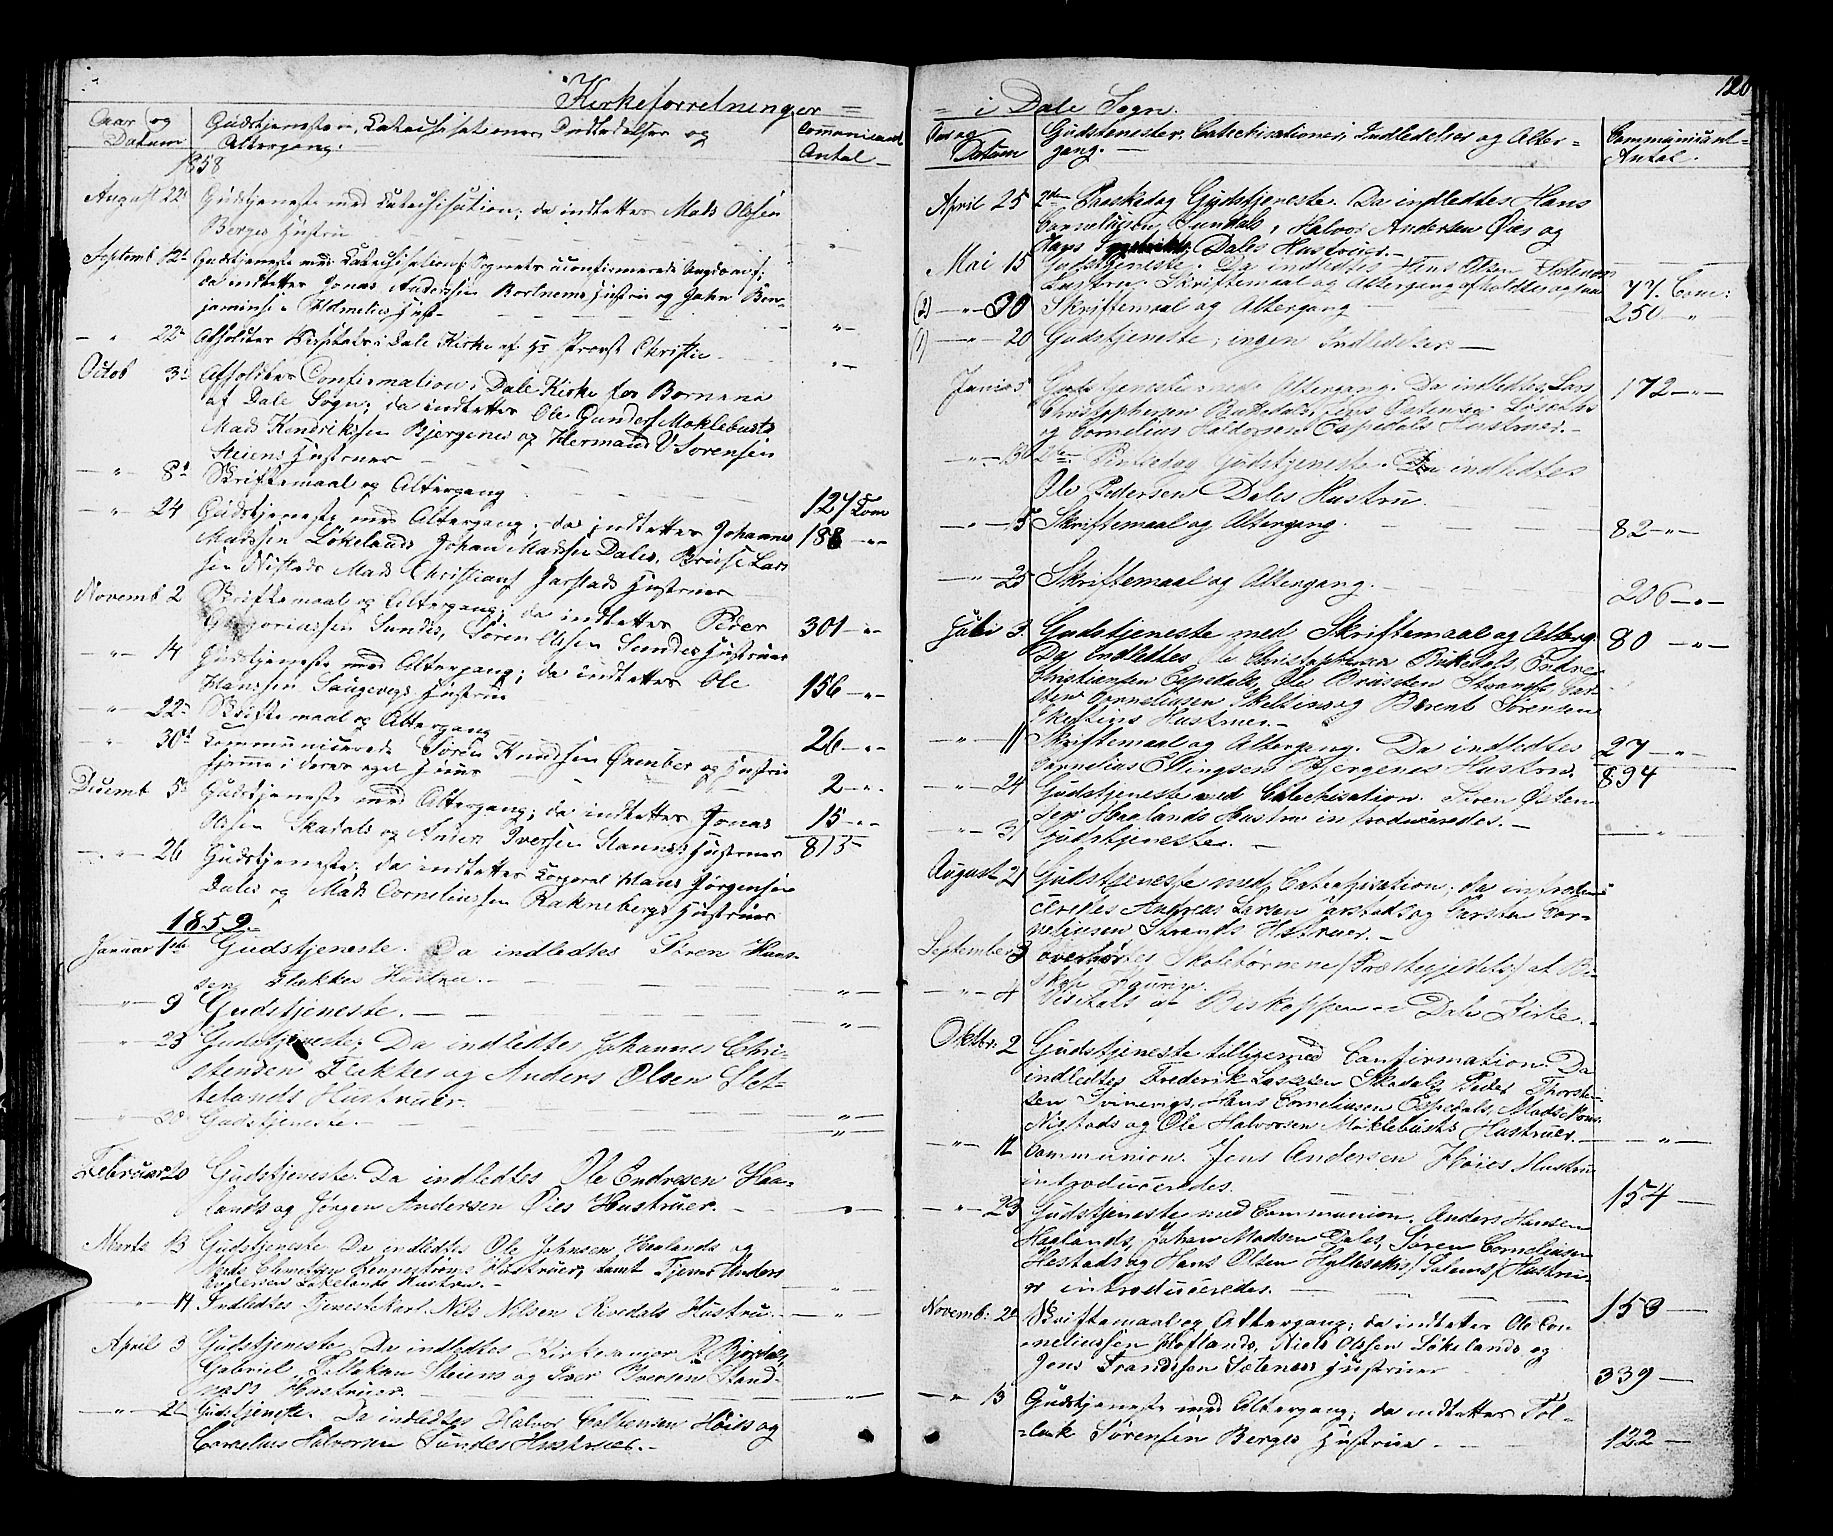 Kirkeforretninger =
Aar og Datum
Gudstjenester, Katechisationer, Indledelser og Altergang.
Communicant Antal
1858
August 22 Gudstjeneste med Katechisation; da indtattes Mads Olsen
Berges Hustru
Septemb 12 Gudstjeneste med Katechisation f. Sognets uconfirmerede Ungdom;
da indtattes Jonas Andersen Bortnems Hustru og John Ben-
jaminsen Holmelids Hust
" 22 Afholdtes Visitats i Dale Kirke af Hr Provst Christie
Octob 3 Afholdtes Confirmation i Dale Kirke for Børnene
af Dale Sogn; da indtattes Ole Gunders Møklebusts
Mads Hendrikssen Bjergenes og Hermand V Sørensen
Steiens Hustruer
" 8 Skriftemaal og Altergang 127 Com
" 24 Gudstjeneste med Altergang; da indtattes Johannes 188 "
Madssen Løkelands Johan Madssen Dales, Lars
sen Nistads Mads Christians Jarstads Hustruer
Novemb 2 Skriftemaal og Altergang; da indtattes Peder 301 "
Gregoriussen Sundes, Søren Olsen Sundes Hustruer
" 14 Gudstjeneste med Altergang; da indtattes Ole 156 "
Hanssen Saugevegs Hustru
" 22 Skriftemaal og Altergang 26 "
" 30 Communicerede Søren Knudssen og Hustru
hjemme i deres eget Huus 2 "
Decemb 5 Gudstjeneste med Altergang; da indtattes Jonas 15 "
Olssen Skadals og Anders Iversen Hustruer 815
" 26 Gudstjeneste; da indtattes Korporal Hans Jørgensen
Dales og Mads Corneliussen Raknebergs Hustruer
1859.
Januar 1ste Gudstjeneste. Da indledtes Søren Hans-
sen Flakkes Hustru. "
" 9 Gudstjeneste. "
" 23 Gudstjeneste; Da indledtes Johannes Chri-
stensen Flekkes og Anders Olsen Slet-
telands Hustruer. "
" 30 Gudstjeneste. "
Februar 20 Gudstjeneste. Da indledtes Ole Endresen Haa-
lands og Jørgen Andersen Øies Hustruer. "
Marts 13 Gudstjeneste Da indledtes Ole Johnsen Haalands og
Mads Hustruer, samt Tjener Anders
Løkelands Hustru. "
" 14 Indledtes Tjenestekarl Nils Nilsen Rivedals Hustru. "
April 3 Gudstjeneste Da indledtes Kirkesanger R. Bjordal,
Gabriel Tollaksen Steiens og Iver Iversen Sand-
næss Hustruer. "
" 21 Gudstjeneste. Da indledtes Halvor Høies og
Cornelius Halvorsen Sundes Hustruer.
= i Dale Sogn. 120
Aar og Datum
Gudstenester, Catechisationer, Indledelser og Alter=
gang.
Communicant=
Antal.
April 25 2den Paaskedag Gudstjeneste. Da indledtes Hans
Corneliusen Sundals, Halvor Andersen Øies og
Hans Dales Hustruer.
Mai 15 Gudstjeneste. Da indledtes Jens Olsen
Hustru. Skriftemaal og Altergang 77. Com:
(2) " 30 Skriftemaal og Altergang 250 "
(1) " 20 Gudstjeneste; ingen Indledelser.
Juni 5 Gudstjeneste med Altergang. Da indledtes Lars 172 "
Christophersen Jens Østensen
og Cornelius Haldorsen Espedals Hustruer.
" 13 2den Pintsedag Gudstjeneste. Da indledtes
Ole Pedersen Dales Hustru.
" 5 Skriftemaal og Altergang. 82 "
" 25 Skriftemaal og Altergang. 206 "
Juli 3 Gudstjeneste med Skriftemaal og Alterg 80 "
Da indledtes Ole Christophersen Endre
Kristiansen Espedals, Ole Strands, Car-
sten Corneliusen og Berent Sørensen
Hustruer.
" 11 Skriftemaal og Altergang. Da indledtes 27 "
Cornelius Ellingsen Bjergenes Hustru. 894
" 24 Gudstjeneste med Catechisation. Østen
sen Haalands Hustru introduceredes.
" 31 Gudstjeneste. "
August 21 Gudstjeneste med Catechisation; da introdu=
ceredes Andreas Larsen Jarstads og Carsten Cor-
neliusen Strands Hustruer.
September 3 overhørtes Skolebørnene /Præstegjeldets/ af Bi-
skop
" 4 Visitats af Biskoppen i Dale Kirke.
Oktbr. 2 Gudstjeneste tilligemed Confirmation. Da
indledtes Frederik Lassesen Skadals, Peder Thorste-
sen Svinevigs, Hans Corneliusen Espedals, Mads
Nistads og Ole Halvorsen Møklebusts Hustruer. "
" 12 Communion. Jens Andersen Høies Hustru
introduceredes. 154
" 23 Gudstjeneste med Communion. Anders Hansen
Haalands, Johan Madsen Dales, Søren Corneliusen
Hestads og Hans Olsen Hyllesets /Salems/ Hustru-
er introduceredes. 153
Novemb: 2 Skriftemaal og Altergang; da indtattes Ole Cor-
neliussen Hoflands, Niels Olssen Løkelands og
Jens Frandssen Sætenæs Hustruer 339
" 13 Gudstjeneste med Altergang; da indtattes Tol-
lak Sørensen Berges Hustru 122